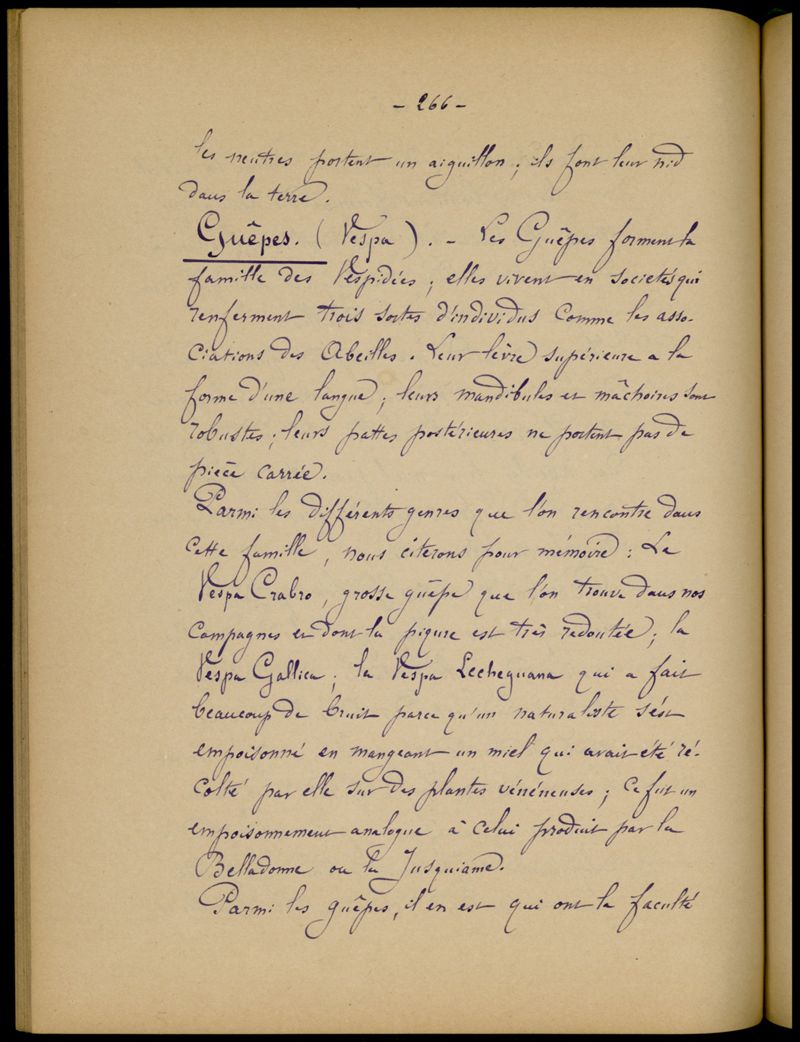 - 266 -
les neutres portent un aiguillon ; ils font leur nid
dans la terre.
Guêpes. (Vespa). - Les Guêpes forment la
famille des Vespidées ; elles vivent en sociétés qui
renferment trois sortes d'individus comme les asso-
ciations des Abeilles. Leur lèvre supérieure a la
forme d'une langue ; leurs mandibules et mâchoires sont
robustes ; leurs pattes postérieures ne portent pas de
pièce carrée.
Parmi les différents genres que l'on rencontre dans
cette famille, nous citerons pour mémoire : La
Vespa Crabro, grosse guêpe que l'on trouve dans nos
campagnes et dont la piqure est très redoutée ; la
Vespa Gallica ; la Vespa Lecheguana qui a fait
beaucoup de bruit parce qu'un naturaliste s'est
empoisonné en mangeant un miel qui avait été ré-
colté par elle sur des plantes vénéneuses ; ce fut un
empoisonnement analogue à celui produit par la
Belladone ou la Jusquiame.
Parmi les guêpes, il en est qui ont la faculté